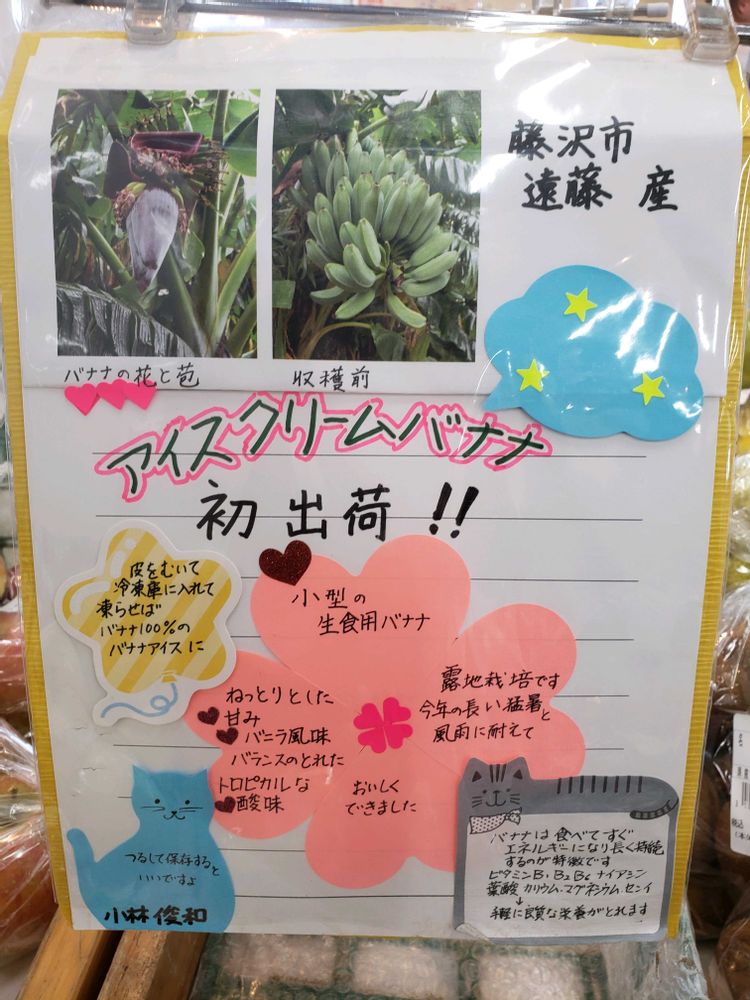 藤沢市
遠藤 産
バナナの花と苞
収穫前
アイスクリームバナナ
初出荷!!
皮をむいて
冷凍庫に入れて
凍らせば
バナナ100%の
バナナアイスに
小型の
生食用バナナ
ねっとりとした
甘み
バニラ風味
バランスのとれた
トロピカルな
酸味
露地栽培です
今年の長い猛暑と
風雨に耐えて
おいしく
できました
つるして保存すると
いいですよ
小林俊和
バナナは食べてすぐ
エネルギーになり長く持続
するのが特徴です
ビタミンB₁ B₂ B₆ ナイアミン
葉酸 カリウム.マグネシウム.センイ
↓
手軽に良質な栄養がとれます